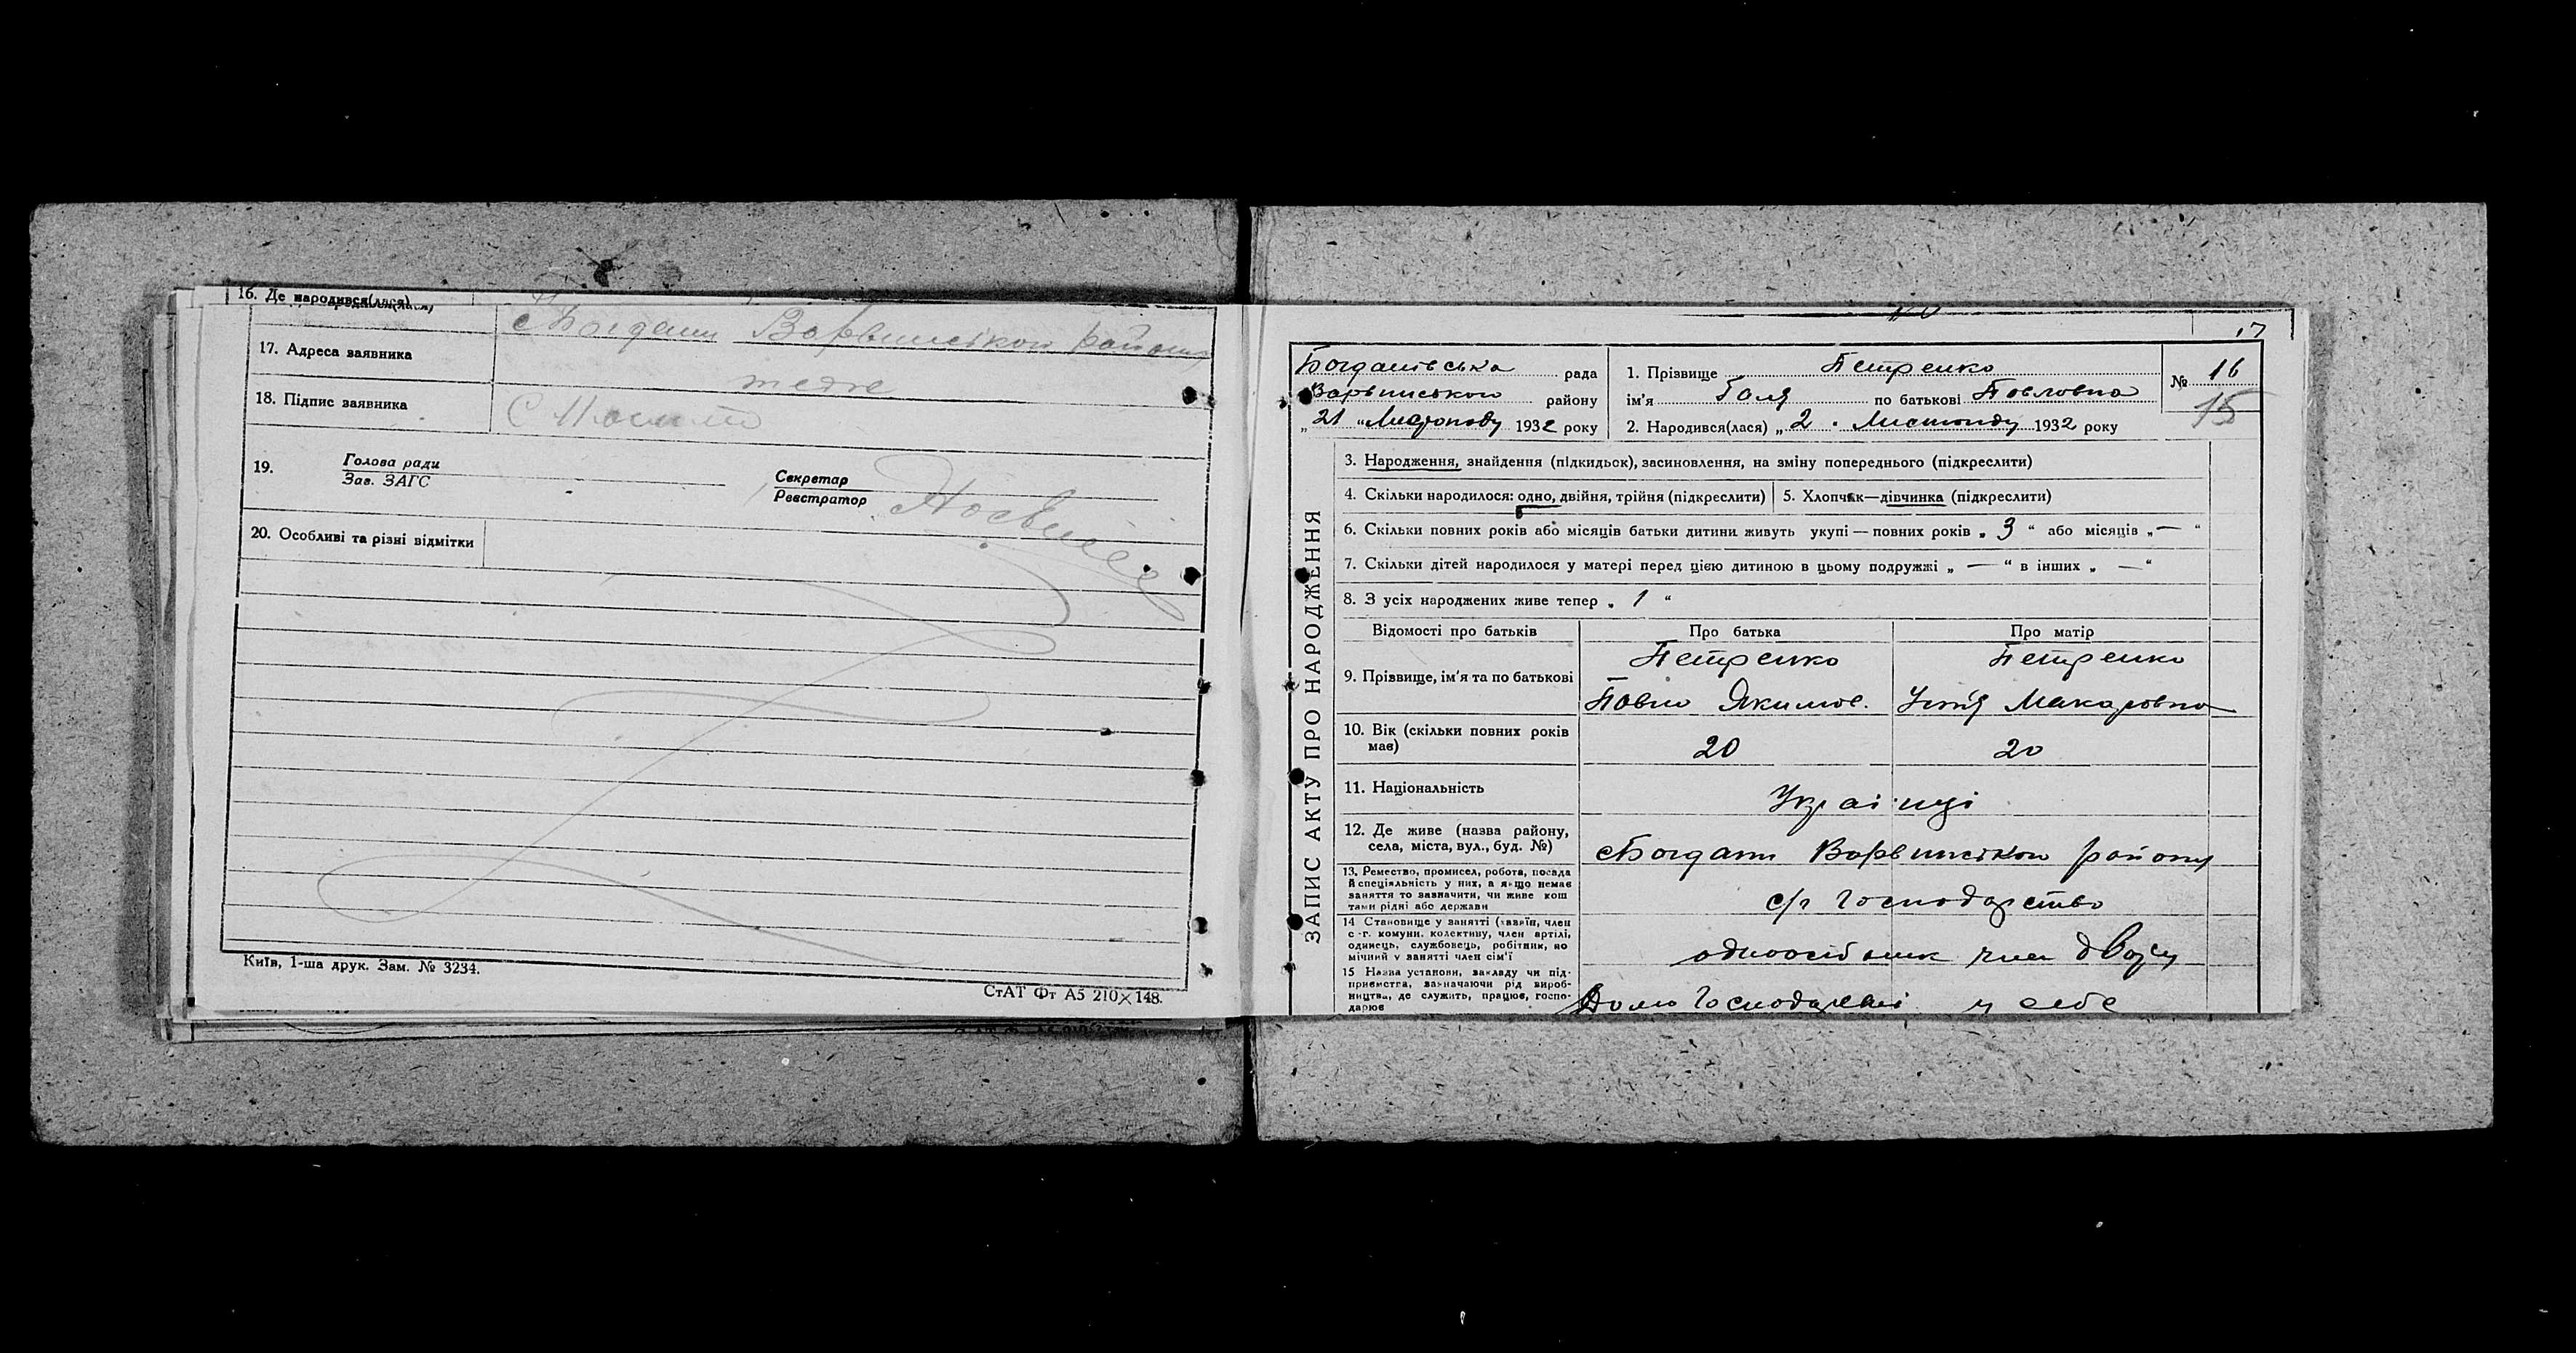 16. Де народився(лася)
с Богдани Варвинського району
17. Адреса заявника
теж
18. Підпис заявника
19. Голова ради
Зав. ЗАГС
Секретар
Реєстратор
20. Особливі та різні відмітки
Київ, 1-ша друк. Зам. № 3234.
СтАТ Фт А5 210×148.
17
Богданівська рада
Варвинського району
„21 „Листопаду 1932 року
1. Прізвище Петренко
ім'я Галя по батькові Павловна
2. Народився(лася) „2 . Листопаду 1932 року
№ 16
15
ЗАПИС АКТУ ПРО НАРОДЖЕННЯ
3. Народження, знайдення (підкидьок), засиновлення, на зміну попереднього (підкреслити)
4. Скільки народилося: одно, двійня, трійня (підкреслити)
5. Хлопчик—дівчинка (підкреслити)
6. Скільки повних років або місяців батьки дитини живуть укупі — повних років „ 3 “ або місяців „ — “
7. Скільки дітей народилося у матері перед цією дитиною в цьому подружжі „ — “ в інших „ — “
8. З усіх народжених живе тепер „ 1 “
Відомості про батьків
Про батька
Про матір
9. Прізвище, ім'я та по батькові
Петренко
Павло Якимов.
Петренко
Устя Макаровна
10. Вік (скільки повних років
має)
20
20
11. Національність
Українці
12. Де живе (назва району,
села, міста, вул., буд. №)
с Богдани Варвинського району
13. Ремество, промисел, робота, посада
й спеціяльність у них, а якщо немає
заняття то зазначити, чи живе кош
тами рідні або держави
с/г господарство
14 Становище у занятті (хазяїн, член
с.-г. комуни. колективу, член артілі,
одинець, службовець, робітник, по
мічний у занятті член сім'ї
одноосібник член двору
15 Назва установи, закладу чи під-
приємства, зазначаючи рід вироб-
ництва, де служить, працює, госпо-
дарює
Домогосподарці у себе